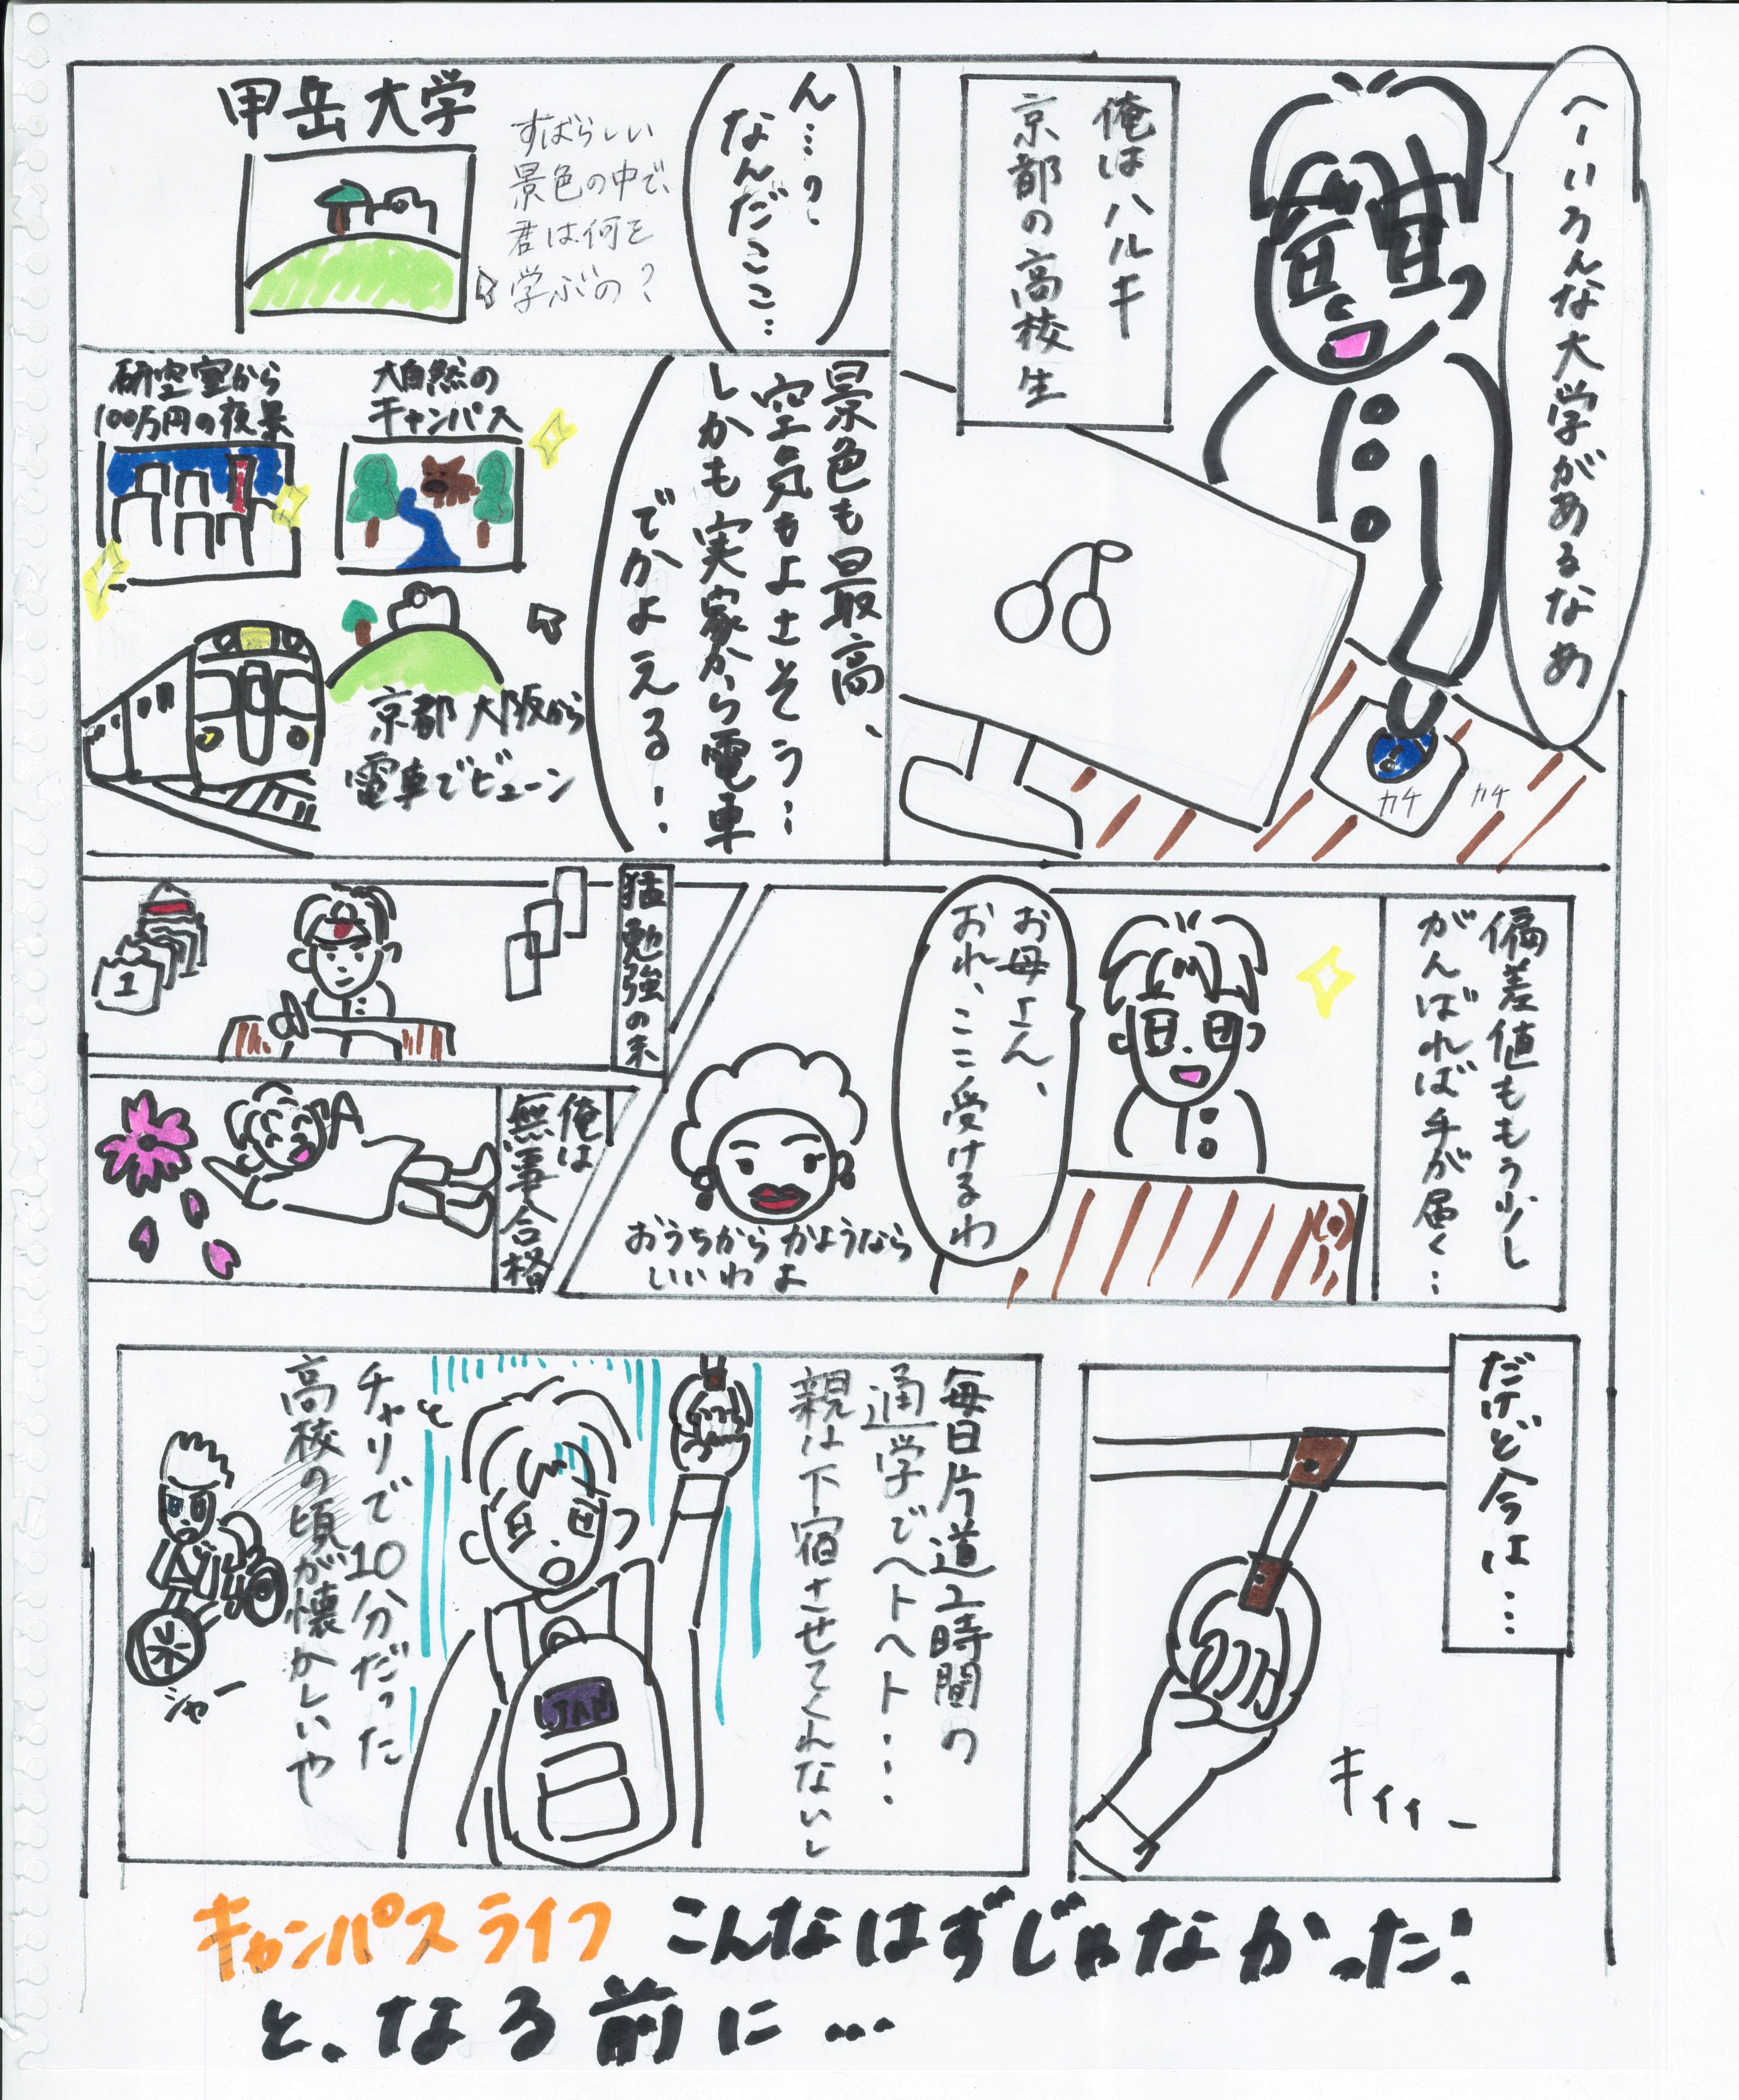 へーいろんな大学があるなあ
俺はハルキ
京都の高校生
カチ
カチ
ん…?
なんだここ…
甲岳大学
すばらしい
景色の中で、
君は何を
学ぶの?
景色も最高、
空気もよさそう…
しかも実家から電車
でかよえる!
大自然の
キャンパス
研究室から
100万円の夜景
京都大阪から
電車でビューン
偏差値ももう少し
がんばれば手が届く…
お母さん、
おれ、ここ受けるわ
おうちからかようなら
いいわよ
猛勉強の末
1
俺は
無事合格
だけど今は…
キィィー
毎日片道2時間の
通学でヘトヘト…
親は下宿させてくれないし
JAN
チャリで10分だった
高校の頃が懐かしいや
シャー
キャンパスライフ こんなはずじゃなかった!
と、なる前に…